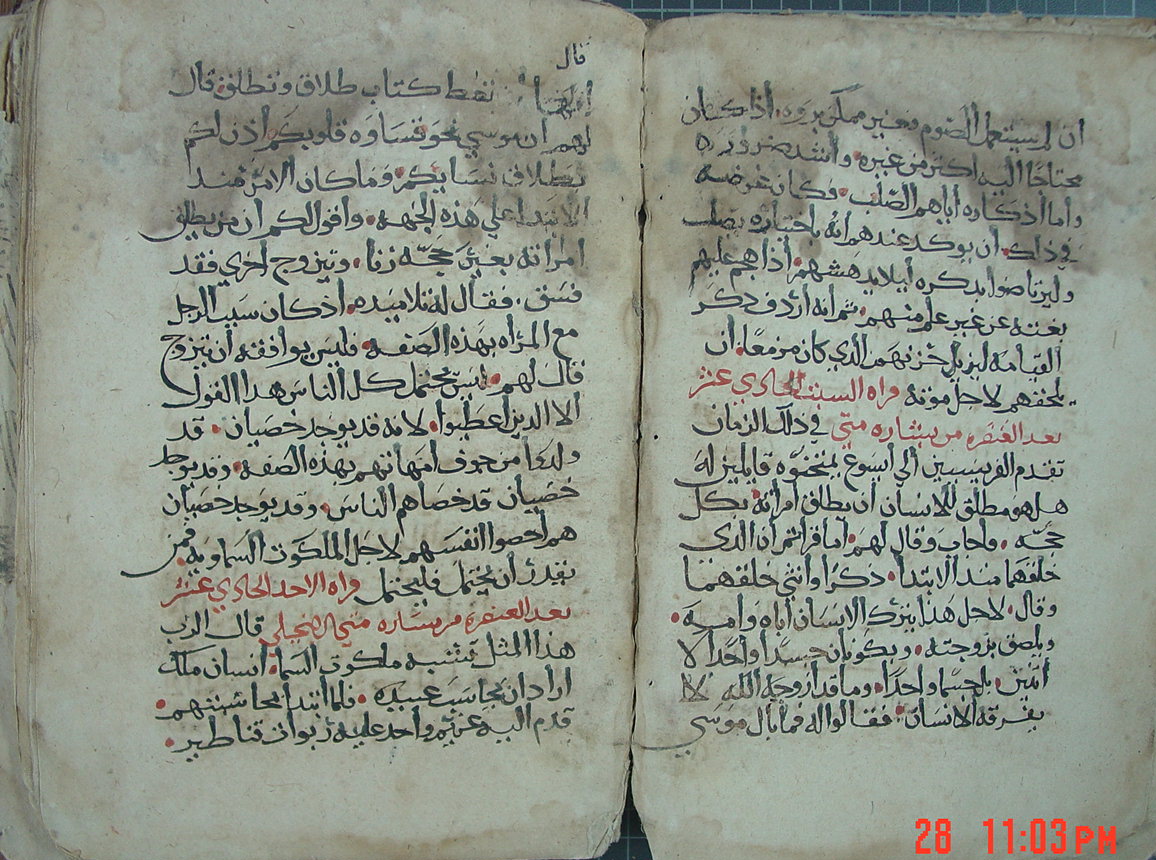 ان لم يستعمل الصوم فغير ممكن بروه. اذا كان
محتاجا اليه اكثر من غيره. واشد ضروره
واما اذكاره اياهم الصلب. فكان غرضه
في ذاك. ان يوكد عندهم انه باختياره يصلب
وليرتاضوا بذكره ليلا يدهشهم. اذا هجم عليهم
بغته عن غير علم منهم. ثم انه اردف ذكر
القيامه ليزيل حزنهم الذي كان مزمعا. ان
يلحقهم لاجل موته قراه السبت الحادي عشر
بعد العنصره من بشاره متي في ذلك الزمان
تقدم الفريسيين الي ايسوع يمتحنوه قايلين له
هل هو مطلق للانسان ان يطلق امراته. بكل
حجه. فاجاب وقال لهم. اما قراتم ان الذي
خلقهما منذ الابتدا. ذكرا وانثي خلقهما
وقال. لاجل هذا يترك الانسان اباه وامه.
ويلصق بزوجته. ويكونان جسدا واحدا لا
اثنين. بل جسما واحدا. وما قد ازوجه الله لا
يفرقه الانسان. فقالوا له فما بال موسي
قال
نعطا كتاب طلاق وتطلق. قال
لهم ان موسي نحو قساوه قلوبكم اذن لكم
بطلاق نسايكم. وما كان الامر منذ
الابتدا علي هذه الجهه. واقول لكم ان من يطلق
امراته بغير حجه زنا. وتيزوج اخري فقد
فسق. فقال له تلاميذه. اذ كان سبب الرجل
مع المراه بهذه الصفه. فليس يوافقه ان يتزوج
قال لهم. ليس يحتمل كل الناس هذا القول
الا الذين اعطيوا. لانه قد يوجد خصيان. قد
ولدوا من جوف امهاتهم بهذه الصفه. وقد يوجد
خصيان قد خصاهم الناس. وقد يوجد خصيان
هم اخصوا انفسهم لاجل الملكوت السماويه. فمن
يقدر ان يحتمل فليحتمل قراه الاحد الحادي عشر
بعد العنصره من بشاره متي الانجيلي قال الرب
هذا المثل تشبه ملكوت السما. انسان ملك
اراد ان يحاسب عبيده. فلما ابتدا بمحاسبتهم.
قدم اليه غريم واحد عليه ربوات قناطير.